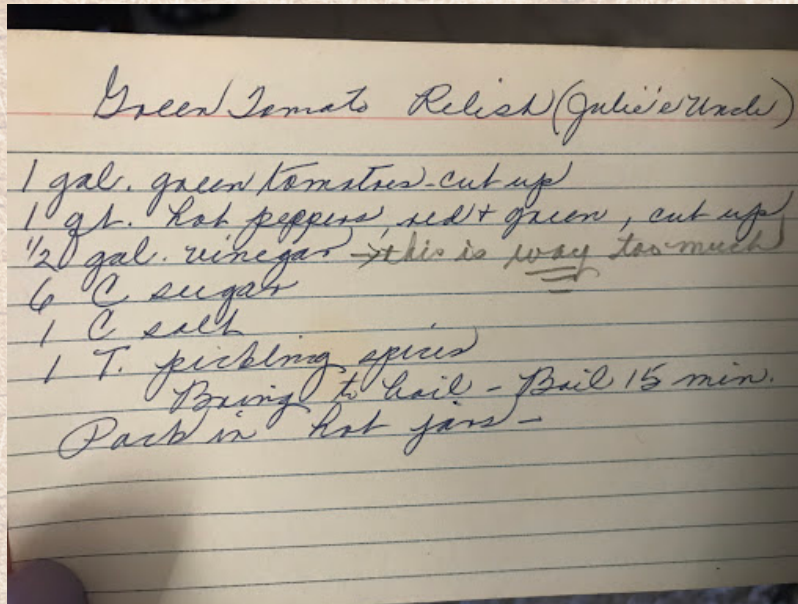 Green Tomato Relish (Julie's Uncle)
1 gal. green tomatoes - cut up
1 qt. hot peppers, red + green, cut up
1/2 gal. vinegar → this is way too much
6 C sugar
1 C salt
1 T. pickling spices
Bring to boil - Boil 15 min.
Pack in hot jars -